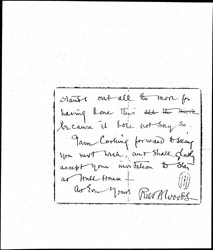 stands out all the more for
having done this all the more
because it does not say so.
I am looking forward to seeing
you next week, and shall gladly
accept your invitation to stay
at Hull House.
As Ever Yours
Robt A Woods